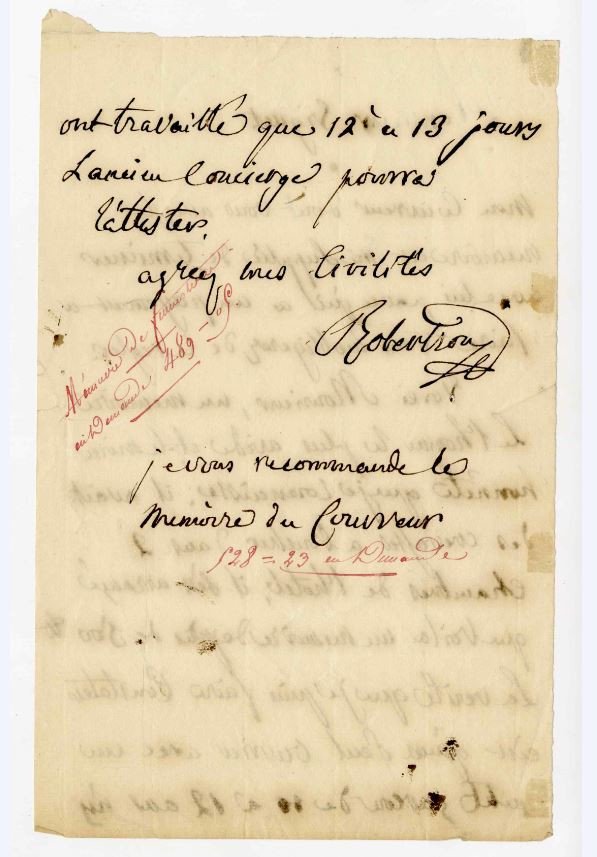 ont travaillé que 12 à 13 jours
Lancien Concierge pourra
l'attester.
agréez mes Civilités
Robertson
Mémoire de
en Demande 489 = 05
je vous recommande le
Memoire du Couvreur
528 = 23 en Demande